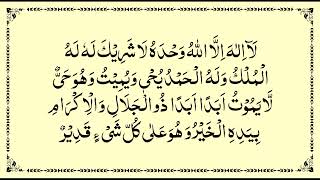 لَآ اِلٰهَ اِلَّا اللّٰهُ وَحْدَهٗ لَا شَرِيْكَ لَهٗ لَهُ
الْمُلْكُ وَلَهُ الْحَمْدُ يُحْيٖ وَيُمِيْتُ وَهُوَ حَیٌّ
لَّا يَمُوْتُ اَبَدًا اَبَدًا ذُو الْجَلَالِ وَالْاِكْرَامِ
بِيَدِهِ الْخَيْرُ وَهُوَ عَلٰى كُلِّ شَیْءٍ قَدِيْرٌ